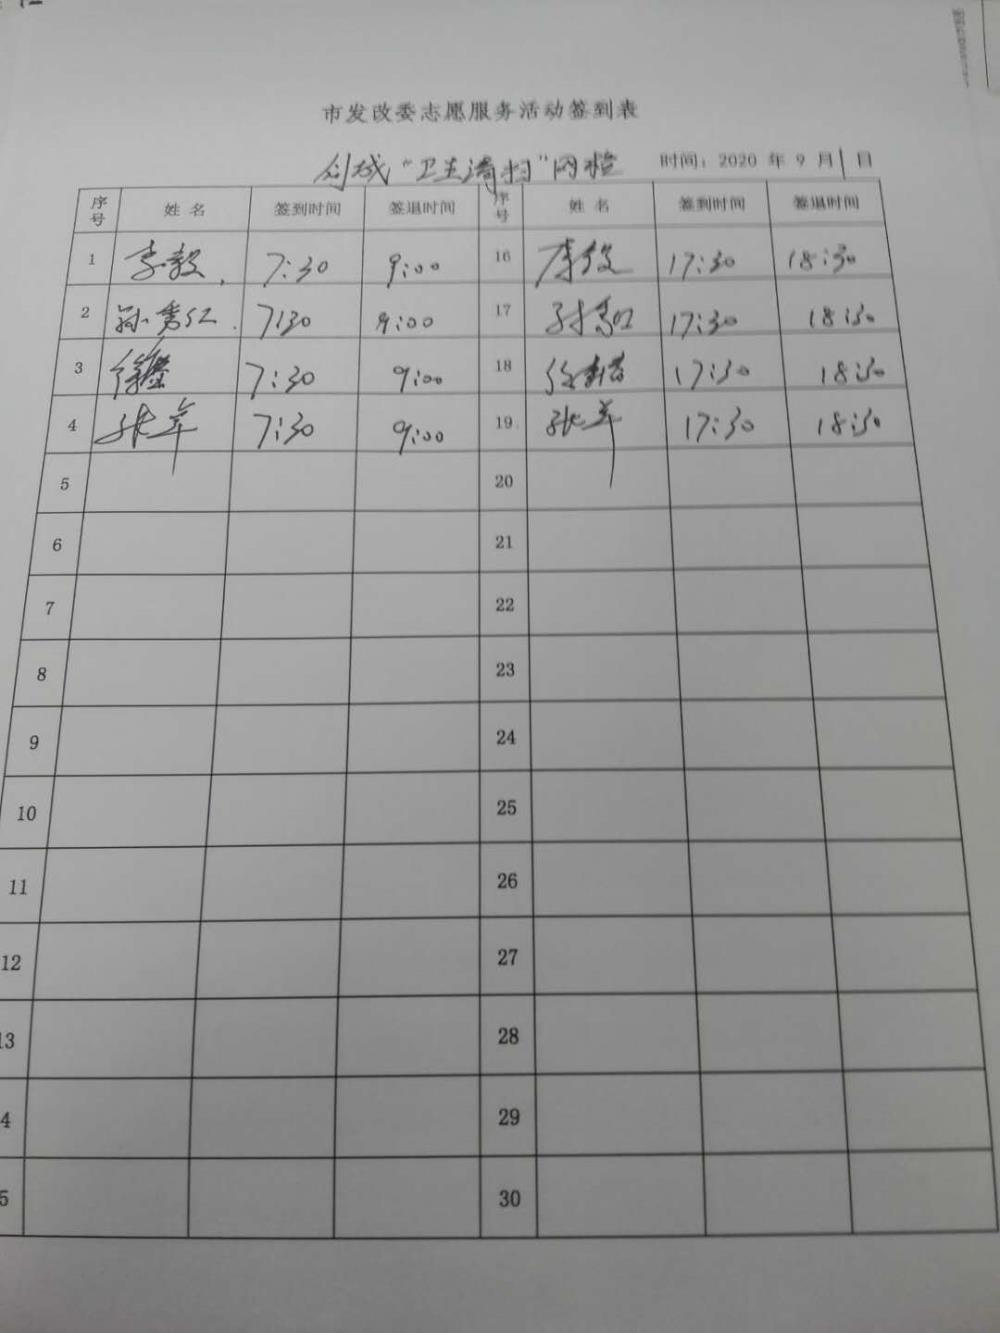 市发改委志愿服务活动签到表
创城“卫生清扫”网格 时间：2020 年 9 月 1 日
序号 姓 名 签到时间 签退时间 序号 姓 名 签到时间 签退时间
1 李毅 7:30 9:00 16 李毅 17:30 18:30
2 孙秀红 7:30 9:00 17 孙秀红 17:30 18:30
3 徐 7:30 9:00 18 徐 17:30 18:30
4 张军 7:30 9:00 19 张军 17:30 18:30
5 20
6 21
7 22
8 23
9 24
10 25
11 26
12 27
13 28
4 29
5 30